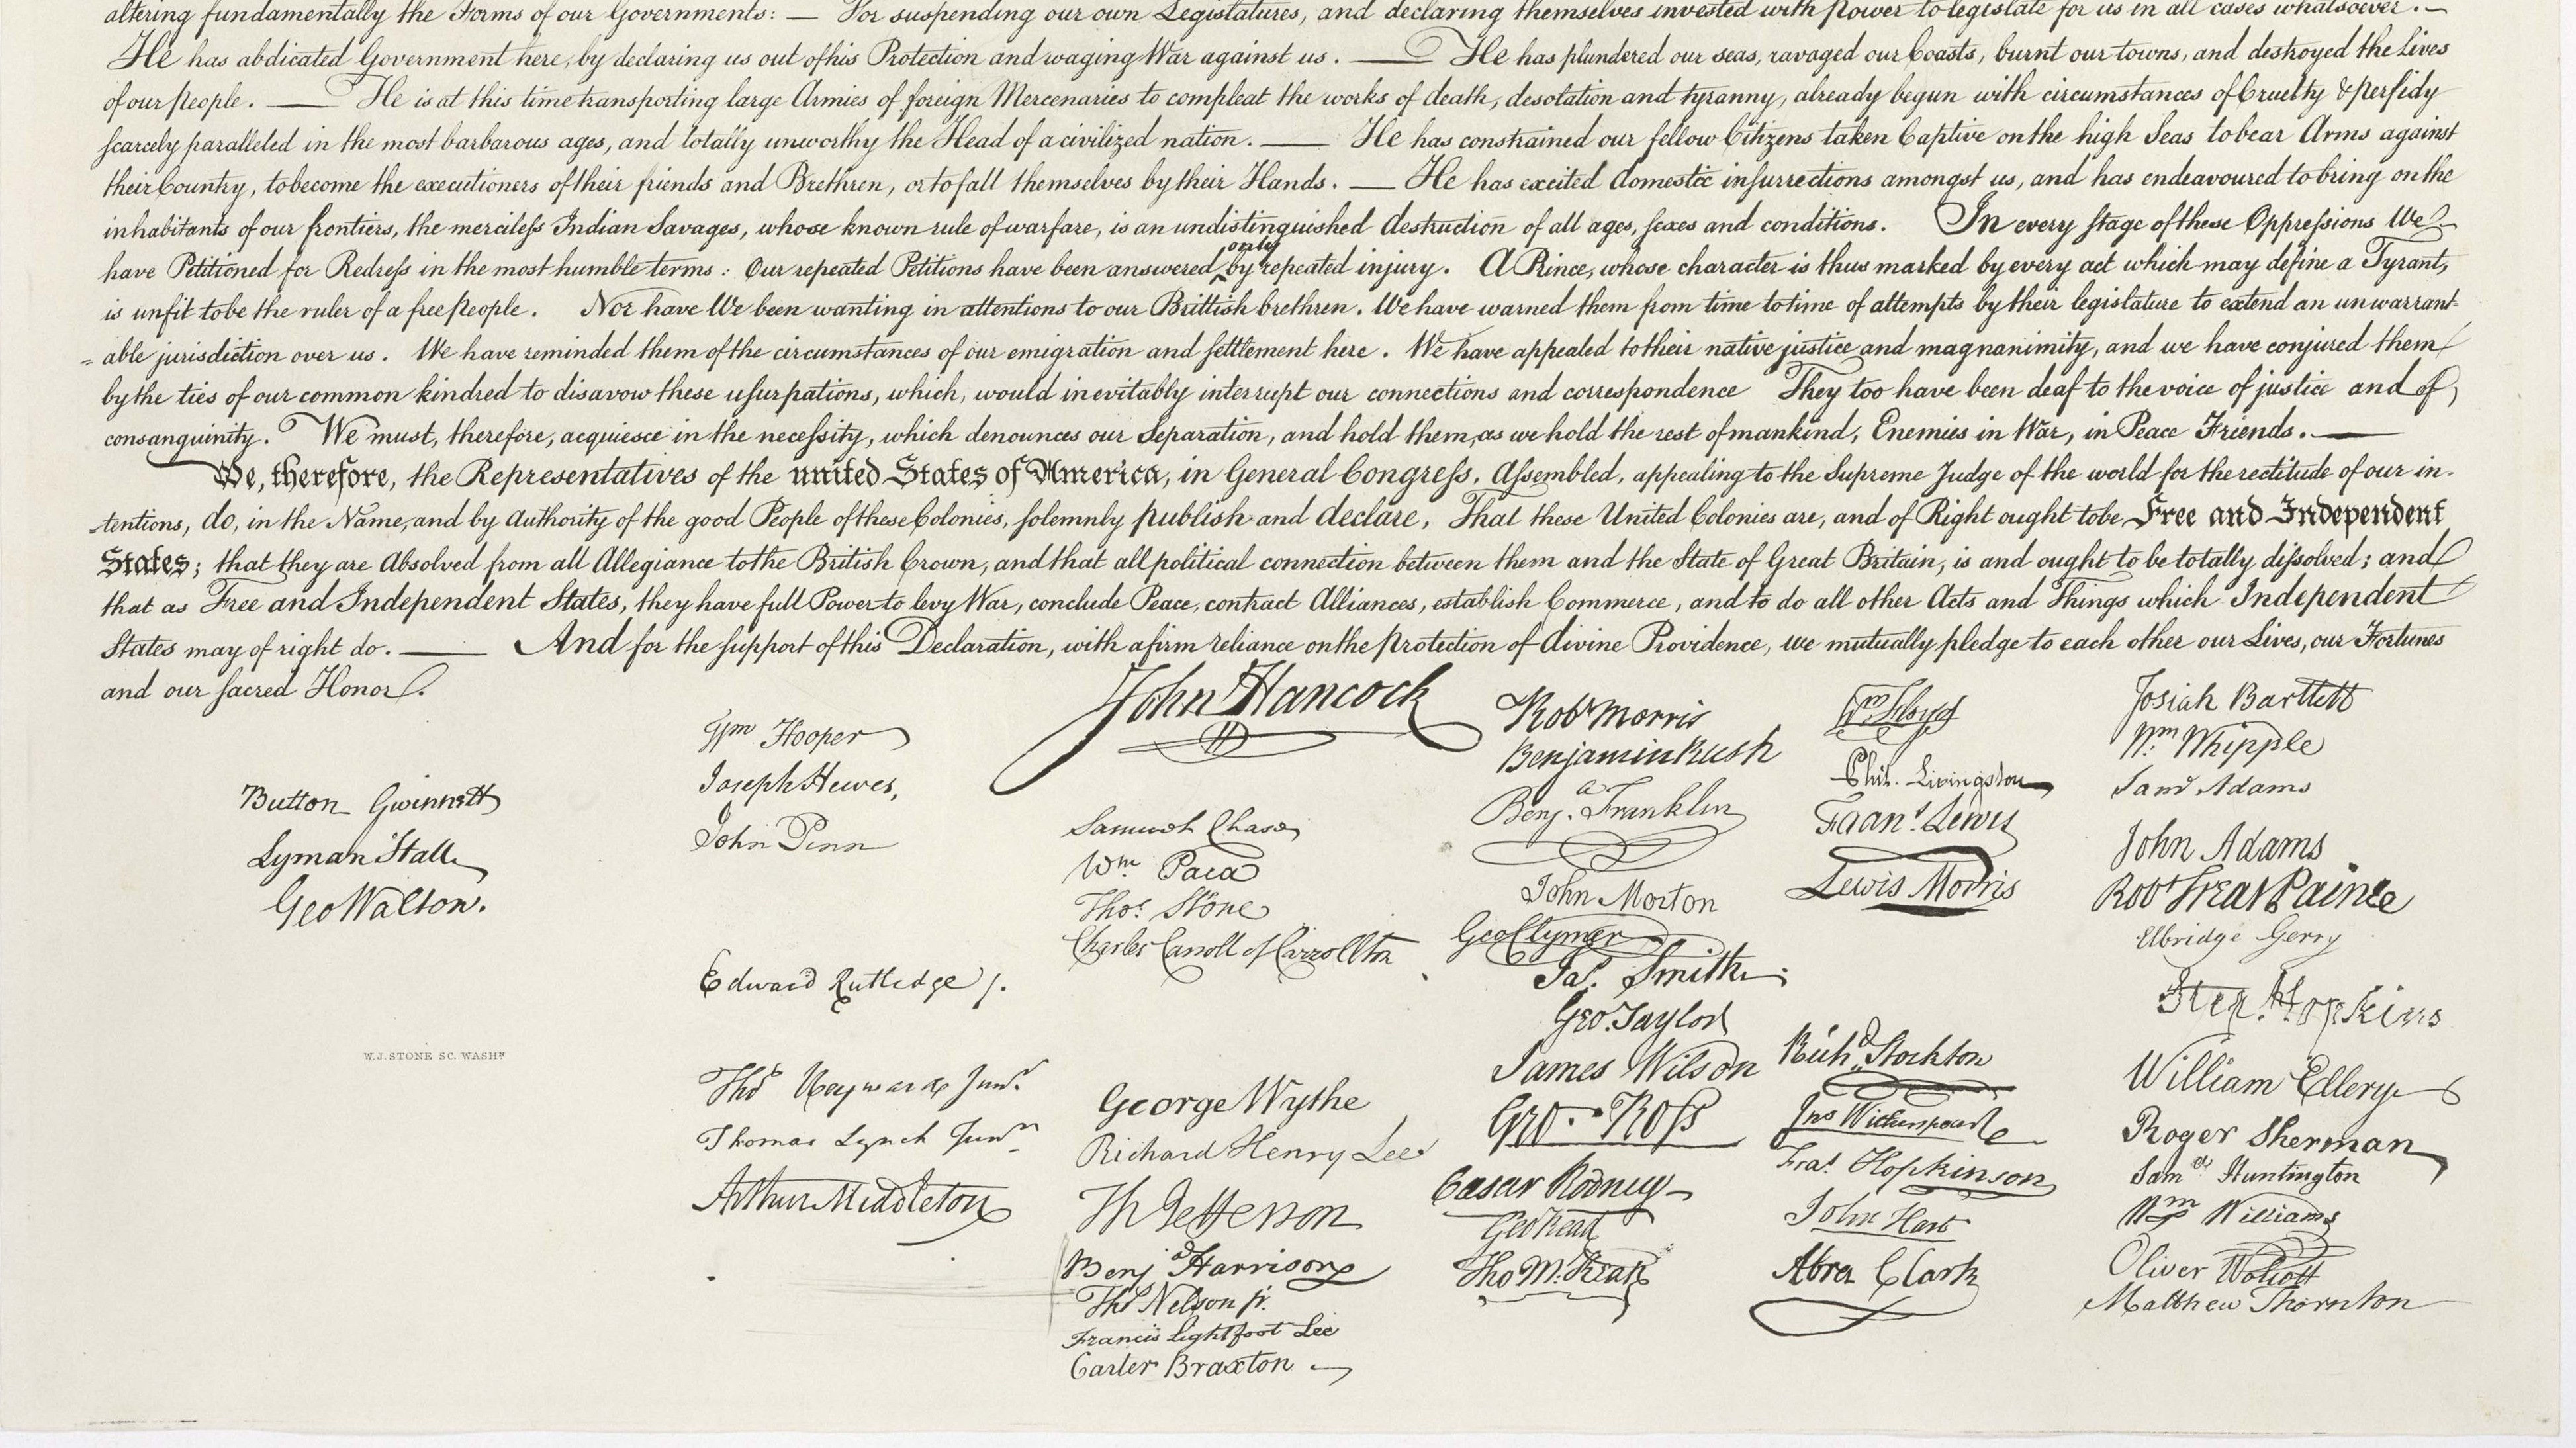 altering fundamentally the Forms of our Governments: — For suspending our own Legislatures, and declaring themselves invested with power to legislate for us in all cases whatsoever. —
He has abdicated Government here, by declaring us out of his Protection and waging War against us. — He has plundered our seas, ravaged our Coasts, burnt our towns, and destroyed the Lives
of our people. — He is at this time transporting large Armies of foreign Mercenaries to compleat the works of death, desolation and tyranny, already begun with circumstances of Cruelty & perfidy
scarcely paralleled in the most barbarous ages, and totally unworthy the Head of a civilized nation. — He has constrained our fellow Citizens taken Captive on the high Seas to bear Arms against
their Country, to become the executioners of their friends and Brethren, or to fall themselves by their Hands. — He has excited domestic insurrections amongst us, and has endeavoured to bring on the
inhabitants of our frontiers, the merciless Indian Savages, whose known rule of warfare, is an undistinguished destruction of all ages, sexes and conditions. In every stage of these Oppressions We
have Petitioned for Redress in the most humble terms: Our repeated Petitions have been answered only by repeated injury. A Prince, whose character is thus marked by every act which may define a Tyrant,
is unfit to be the ruler of a free people. Nor have We been wanting in attentions to our Brittish brethren. We have warned them from time to time of attempts by their legislature to extend an unwarrant-
=able jurisdiction over us. We have reminded them of the circumstances of our emigration and settlement here. We have appealed to their native justice and magnanimity, and we have conjured them
by the ties of our common kindred to disavow these usurpations, which, would inevitably interrupt our connections and correspondence They too have been deaf to the voice of justice and of
consanguinity. We must, therefore, acquiesce in the necessity, which denounces our Separation, and hold them, as we hold the rest of mankind, Enemies in War, in Peace Friends. —
We, therefore, the Representatives of the united States of America, in General Congress, Assembled, appealing to the Supreme Judge of the world for the rectitude of our in-
tentions, do, in the Name, and by Authority of the good People of these Colonies, solemnly publish and declare, That these United Colonies are, and of Right ought to be Free and Independent
States; that they are Absolved from all Allegiance to the British Crown, and that all political connection between them and the State of Great Britain, is and ought to be totally dissolved; and
that as Free and Independent States, they have full Power to levy War, conclude Peace, contract Alliances, establish Commerce, and to do all other Acts and Things which Independent
States may of right do. — And for the support of this Declaration, with a firm reliance on the protection of divine Providence, we mutually pledge to each other our Lives, our Fortunes
and our sacred Honor.
Button Gwinnett
Lyman Hall
Geo Walton.
W. J. STONE SC. WASHN
Wm Hooper
Joseph Hewes,
John Penn
Edward Rutledge /.
Thos Heyward Junr.
Thomas Lynch Junr.
Arthur Middleton
John Hancock
Samuel Chase
Wm. Paca
Thos. Stone
Charles Carroll of Carrollton
George Wythe
Richard Henry Lee
Th Jefferson
Benj Harrison
Thos Nelson jr.
Francis Lightfoot Lee
Carter Braxton
Robt Morris
Benjamin Rush
Benj. Franklin
John Morton
Geo Clymer
Jas. Smith.
Geo. Taylor
James Wilson
Geo. Ross
Caesar Rodney
Geo Read
Tho M:Kean
Wm Floyd
Phil. Livingston
Frans. Lewis
Lewis Morris
Richd. Stockton
Jno Witherspoon
Fras. Hopkinson
John Hart
Abra Clark
Josiah Bartlett
Wm. Whipple
Saml Adams
John Adams
Robt Treat Paine
Elbridge Gerry
Step. Hopkins
William Ellery
Roger Sherman
Saml Huntington
Wm Williams
Oliver Wolcott
Matthew Thornton